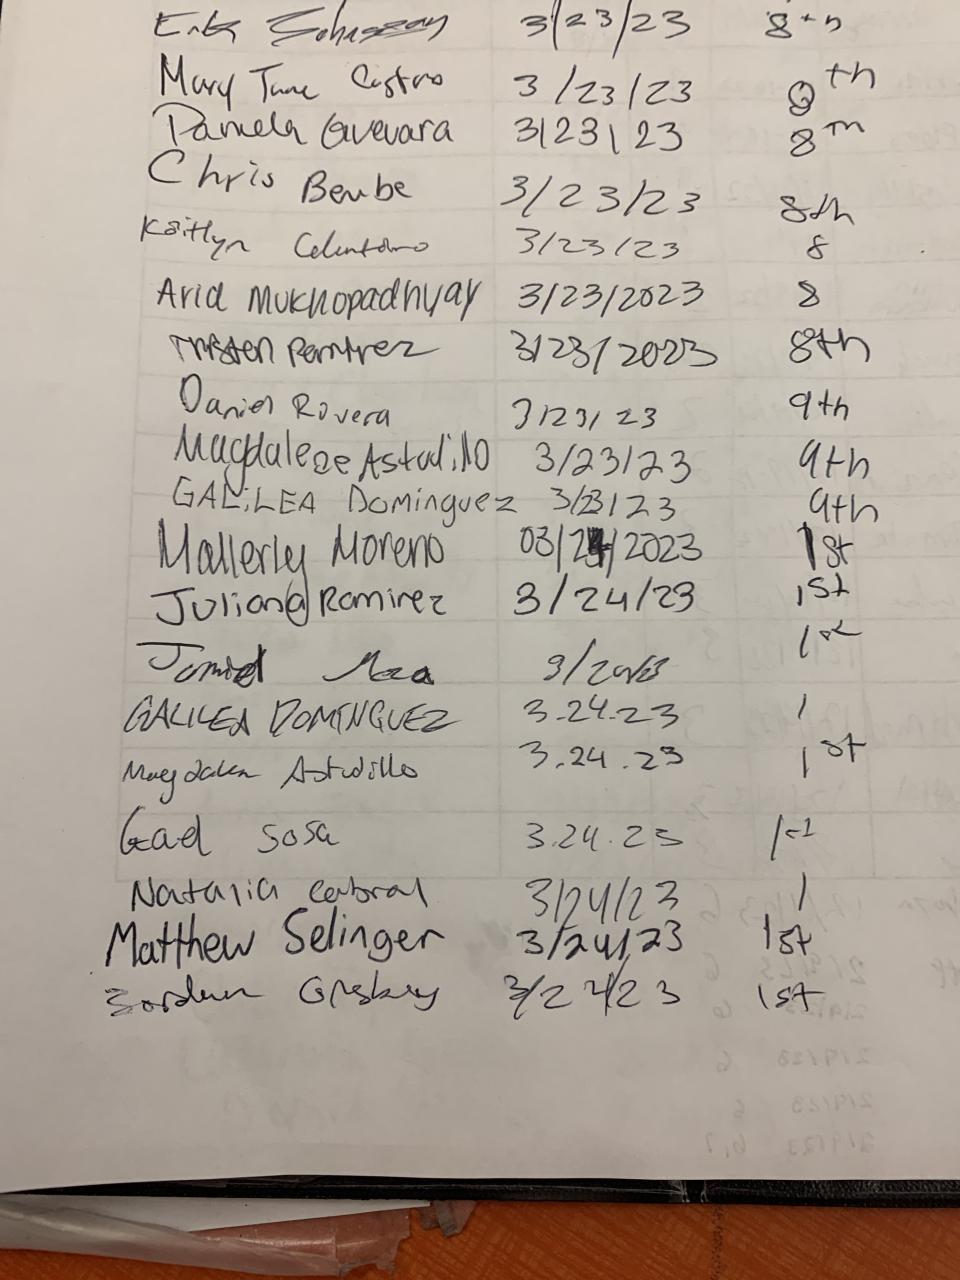 Erik 3/23/23 8th
Mary Jane Castro 3/23/23 8th
Pamela Guevara 3/23/23 8th
Chris Bembe 3/23/23 8th
Kaitlyn 3/23/23 8
Aria Mukhopadhyay 3/23/2023 8
Tristen Ramirez 3/23/2023 8th
Daniel Rovera 3/23/23 9th
Magdalene Astudillo 3/23/23 9th
GALiLEA Dominguez 3/23/23 9th
Mallerly Moreno 03/24/2023 1st
Juliana Ramirez 3/24/23 1st
1st
GALILEA DOMINGUEZ 3.24.23 1
Magdalen Astudillo 3.24.23 1st
Gad Sosa 3.24.23 1st
Natalia Cabral 3/24/23 1
Matthew Selinger 3/24/23 1st
3/24/23 1st